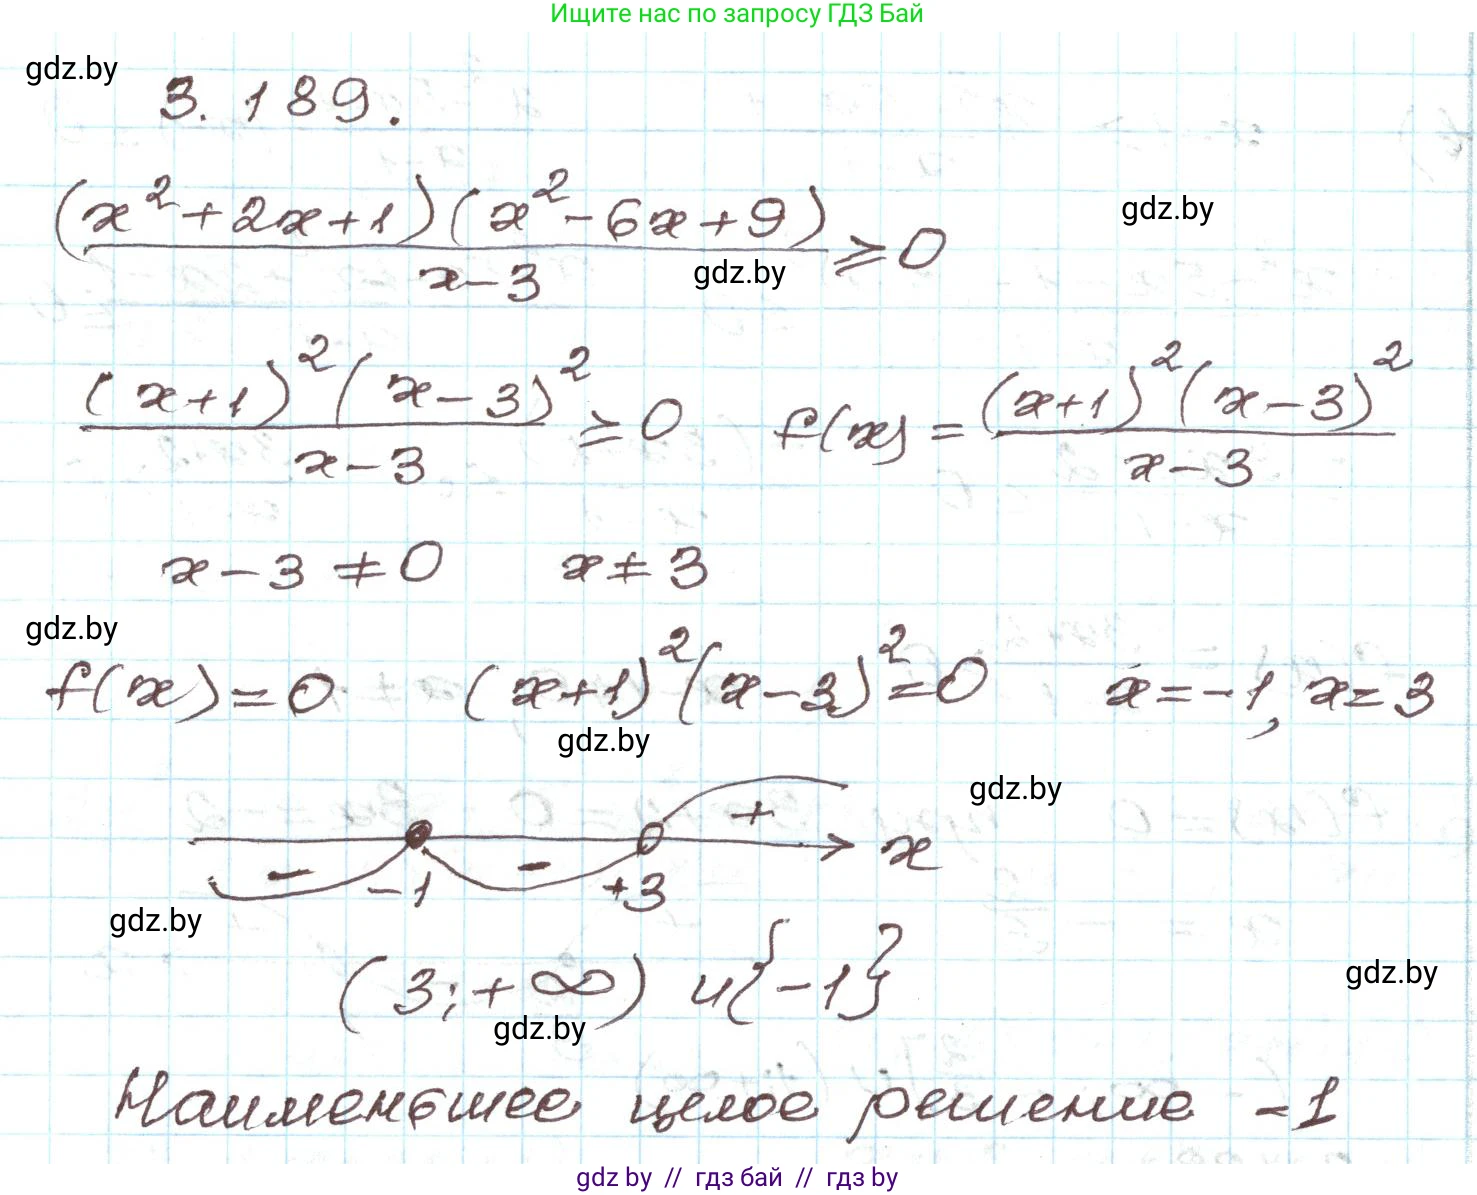 Ищите нас по запросу ГДЗ Бай
gdz.by
3.189.
(x²+2x+1)(x²-6x+9)/(x-3) ≥ 0
gdz.by
gdz.by
(x+1)²(x-3)²/(x-3) ≥ 0 f(x) = (x+1)²(x-3)²/(x-3)
x-3 ≠ 0 x ≠ 3
gdz.by
f(x) = 0 (x+1)²(x-3)² = 0 x = -1, x = 3
gdz.by
gdz.by
- -1 - +3 + x
gdz.by
(3; +∞) и {-1}
gdz.by
gdz.by
Наименьшее целое решение -1
gdz by // гдз бай // гдз by